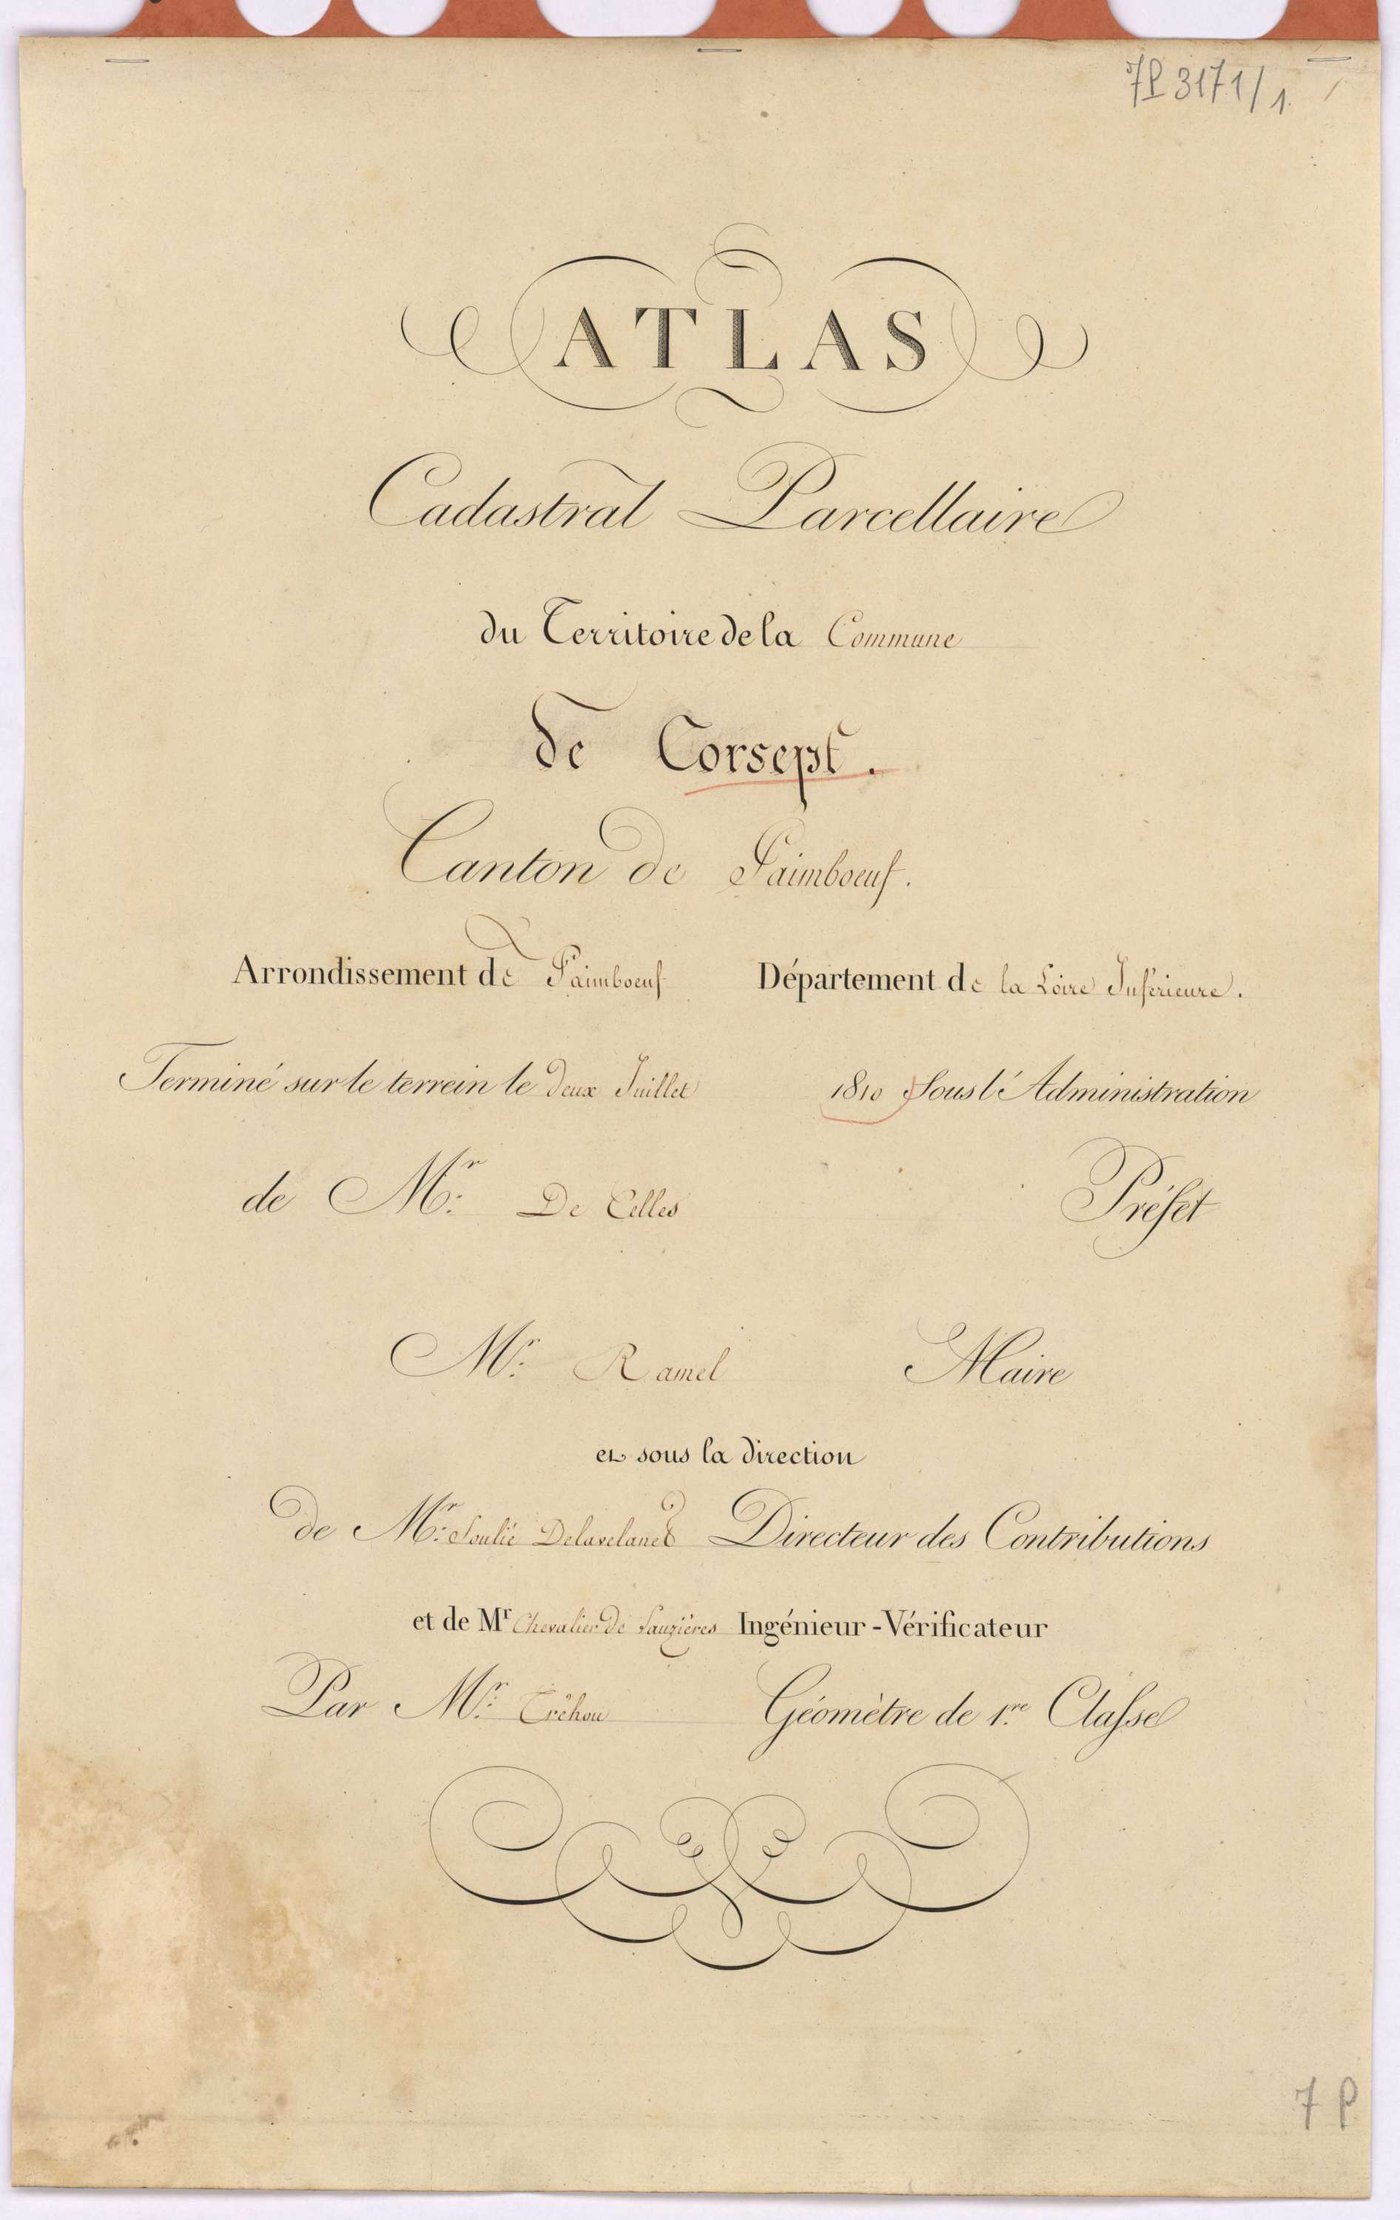 7P 3171/1
ATLAS
Cadastral Parcellaire
du Territoire de la Commune
de Corsept.
Canton de Paimboeuf.
Arrondissement de Paimboeuf Département de la Loire Inférieure.
Terminé sur le terrein le deux Juillet 1810 Sous l'Administration
de Mr. De Celles Préfet
Mr. Ramel Maire
et sous la direction
de Mr. Soulié Delavelaned Directeur des Contributions
et de Mr Chevalier de Sauzières Ingénieur-Vérificateur
Par Mr. Tréhou Géomètre de 1.re Classe
7 P